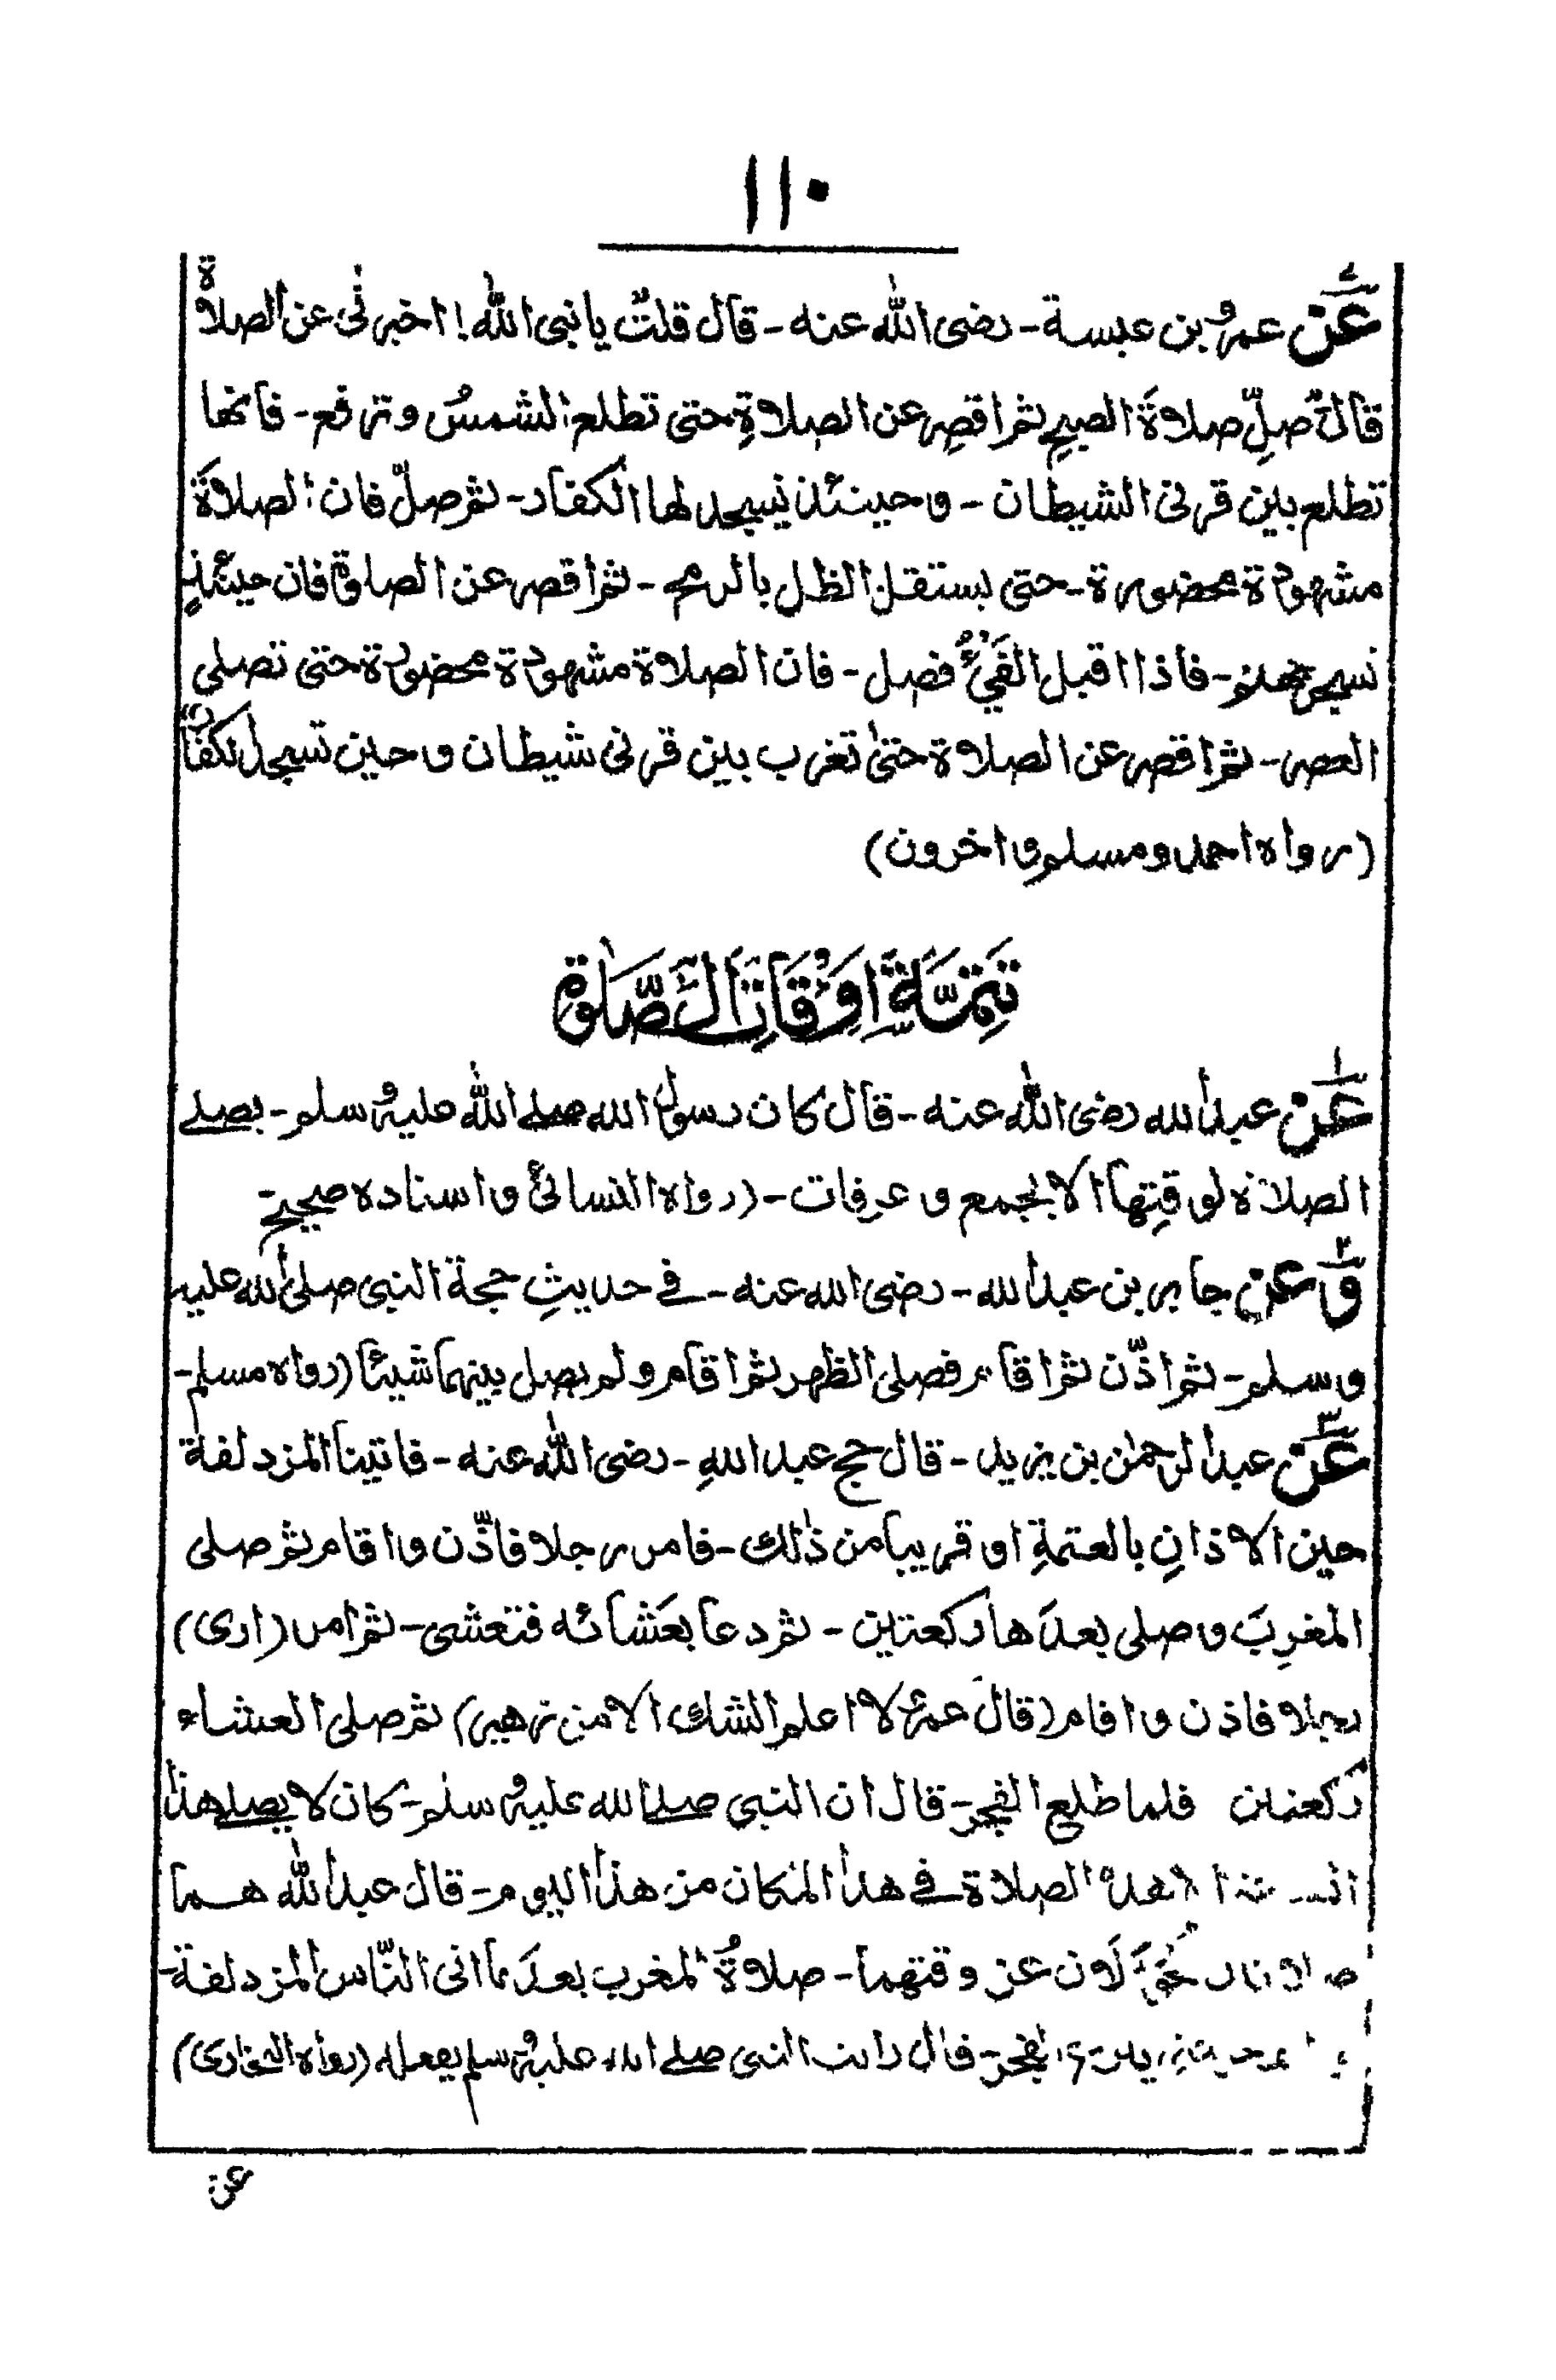 ١١٠
عن عمرو بن عبسة - رضى الله عنه - قال قلت يا نبى الله! اخبرنى عن الصلاة
قال صلِّ صلاةَ الصبح ثم اقصر عن الصلاةِ حتى تطلع الشمسُ وترفع - فانها
تطلع بين قرنى الشيطان - وحينئذ يسجد لها الكفار - ثم صلّ فان الصلاةَ
مشهودة محضورة - حتى يستقل الظل بالرمح - ثم اقصر عن الصلوة فان حينئذٍ
تسجر جهنم - فاذا اقبل الفَيْءُ فصل - فان الصلاة مشهودة محضورة حتى تصلى
العصر - ثم اقصر عن الصلاة حتىٰ تغرب بين قرنى شيطان وحين تسجد لكفار
(رواه احمد ومسلم واخرون)
تَتِمَّةُ اَوْقَاتِ الصَّلٰوة
١ عن عبد الله رضى الله عنه - قال كان رسول الله صلے الله عليه وسلم - يصلے
الصلاة لوقتِها الا بجمع وعرفات - (رواه النسائى واسناده صحيح -
٢ وعن جابر بن عبد الله - رضى الله عنه - فے حديثِ حجة النبى صلى الله عليه
وسلم - ثم اذّن ثم اقام فصلى الظهر ثم اقام ولم يصل بينهما شيئا (رواه مسلم -
٣ عن عبد الرحمٰن بن يزيد - قال حج عبد اللهِ - رضى الله عنه - فاتينا المزدلفة
حين الاذانِ بالعتمةِ او قريبا من ذٰلك - فامر رجلا فاذّن واقام ثم صلى
المغرِبَ وصلى بعدَها ركعتين - ثم دعا بعَشائه فتعشى - ثم امر (ارى)
رجلا فاذن واقام (قال عمرو لا اعلم الشك الا من زهير) ثم صلى العشاء
ركعتين فلما طلع الفجر - قال ان النبى صلے الله عليه وسلم - كان لا يصلے هذا
الا هذه الصلاة فے هذا المكان من هذا اليوم - قال عبد الله هما
تحَوَّلَان عن وقتهما - صلاةُ المغرب بعدَ ما اتى النّاس المزدلفة -
الفجر - قال رايت النبى صلے الله عليه وسلم يفعله (رواه البخارى)
عن